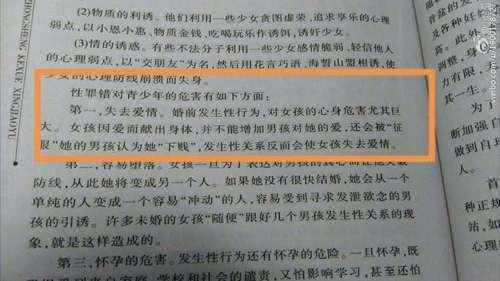 (2)物质的利诱。他们利用一些少女贪图虚荣，追求享乐的心理
弱点，以小恩小惠，物质金钱，吃喝玩乐作诱饵，诱奸少女。
(3)情的诱惑。有些不法分子利用一些少女感情脆弱，轻信他人
的心理弱点，以“交朋友”为名，然后用花言巧语，海誓山盟相诱，使
少女的心理防线崩溃而失身。
性罪错对青少年的危害有如下方面：
第一，失去爱情。婚前发生性行为，对女孩的心身危害尤其巨
大。女孩因爱而献出身体，并不能增加男孩对她的爱，还会被“征
服”她的男孩认为她“下贱”，发生性关系反而会使女孩失去爱情。
第二，容易堕落。女孩一旦为了表达对男孩的真心而让他突破
防线，从此将变成另一个人。如果她没有很快结婚，她会从一个
单纯的人变成一个容易“冲动”的人，容易受到寻求发泄欲念的男
孩的引诱。许多未婚的女孩“随便”跟好几个男孩发生性关系的现
象，就是这样造成的。
第三，怀孕的危害。发生性行为还有怀孕的危险。一旦怀孕，既
学校和社会的谴责，又怕影响学习，甚至还怕
ZHONGSHENG
KEXUE
XINGJIAOYU
盆发的
及各种妊
高。此外
调整，身
力有限，
其一生。
断加强自
做到自
种正规
站，如
心理